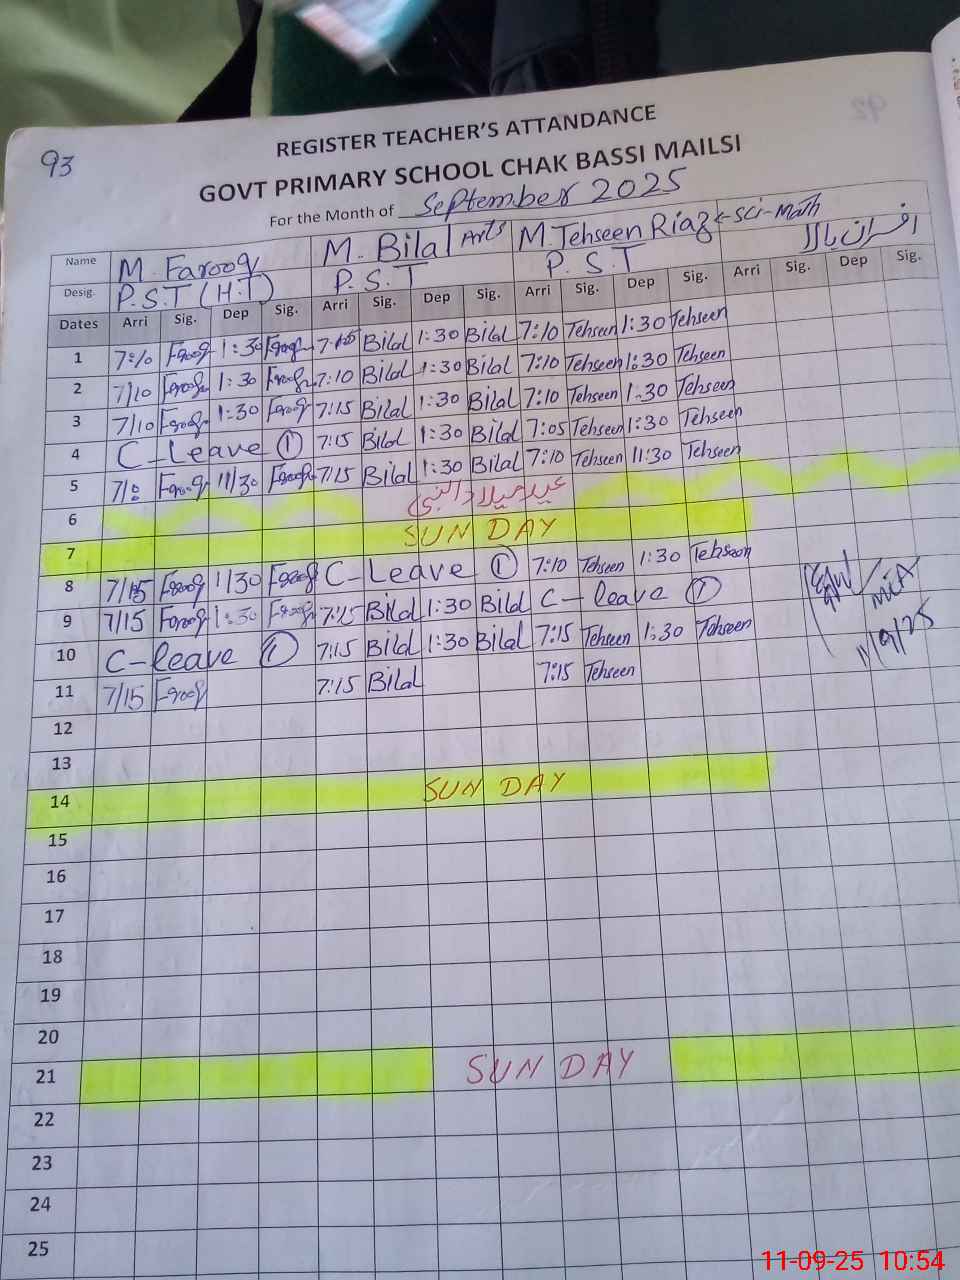 93
REGISTER TEACHER'S ATTANDANCE
GOVT PRIMARY SCHOOL CHAK BASSI MAILSI
For the Month of September 2025
Name M. Farooq M. Bilal Arts M. Tehseen Riaz Sci-Math افسران بالا
Desig. P.S.T (H.T) P.S.T P.S.T
Dates Arri Sig. Dep Sig. Arri Sig. Dep Sig. Arri Sig. Dep Sig. Arri Sig. Dep Sig.
1 7:10 Farooq 1:30 Farooq Bilal 1:30 Bilal 7:10 Tehseen 1:30 Tehseen
2 7/10 Farooq 1:30 Farooq 7:10 Bilal 1:30 Bilal 7:10 Tehseen 1:30 Tehseen
3 7/10 Farooq 1:30 Farooq 7:15 Bilal 1:30 Bilal 7:10 Tehseen 1:30 Tehseen
4 C-Leave 1 7:15 Bilal 1:30 Bilal 7:05 Tehseen 1:30 Tehseen
5 Farooq 11/30 Farooq 7:15 Bilal 1:30 Bilal 7:10 Tehseen 11:30 Tehseen
6 عید میلاد النبی
7 SUN DAY
8 7/15 Farooq 1/30 Farooq C-Leave 1 7:10 Tehseen 1:30 Tehseen
9 7/15 Farooq 1:30 Farooq 7:15 Bilal 1:30 Bilal C-leave 1
10 C-leave 1 7:15 Bilal 1:30 Bilal 7:15 Tehseen 1:30 Tehseen
MEA
11/9/25
11 7/15 Farooq 7:15 Bilal 7:15 Tehseen
12
13
14 SUN DAY
15
16
17
18
19
20
21 SUN DAY
22
23
24
25
11-09-25 10:54